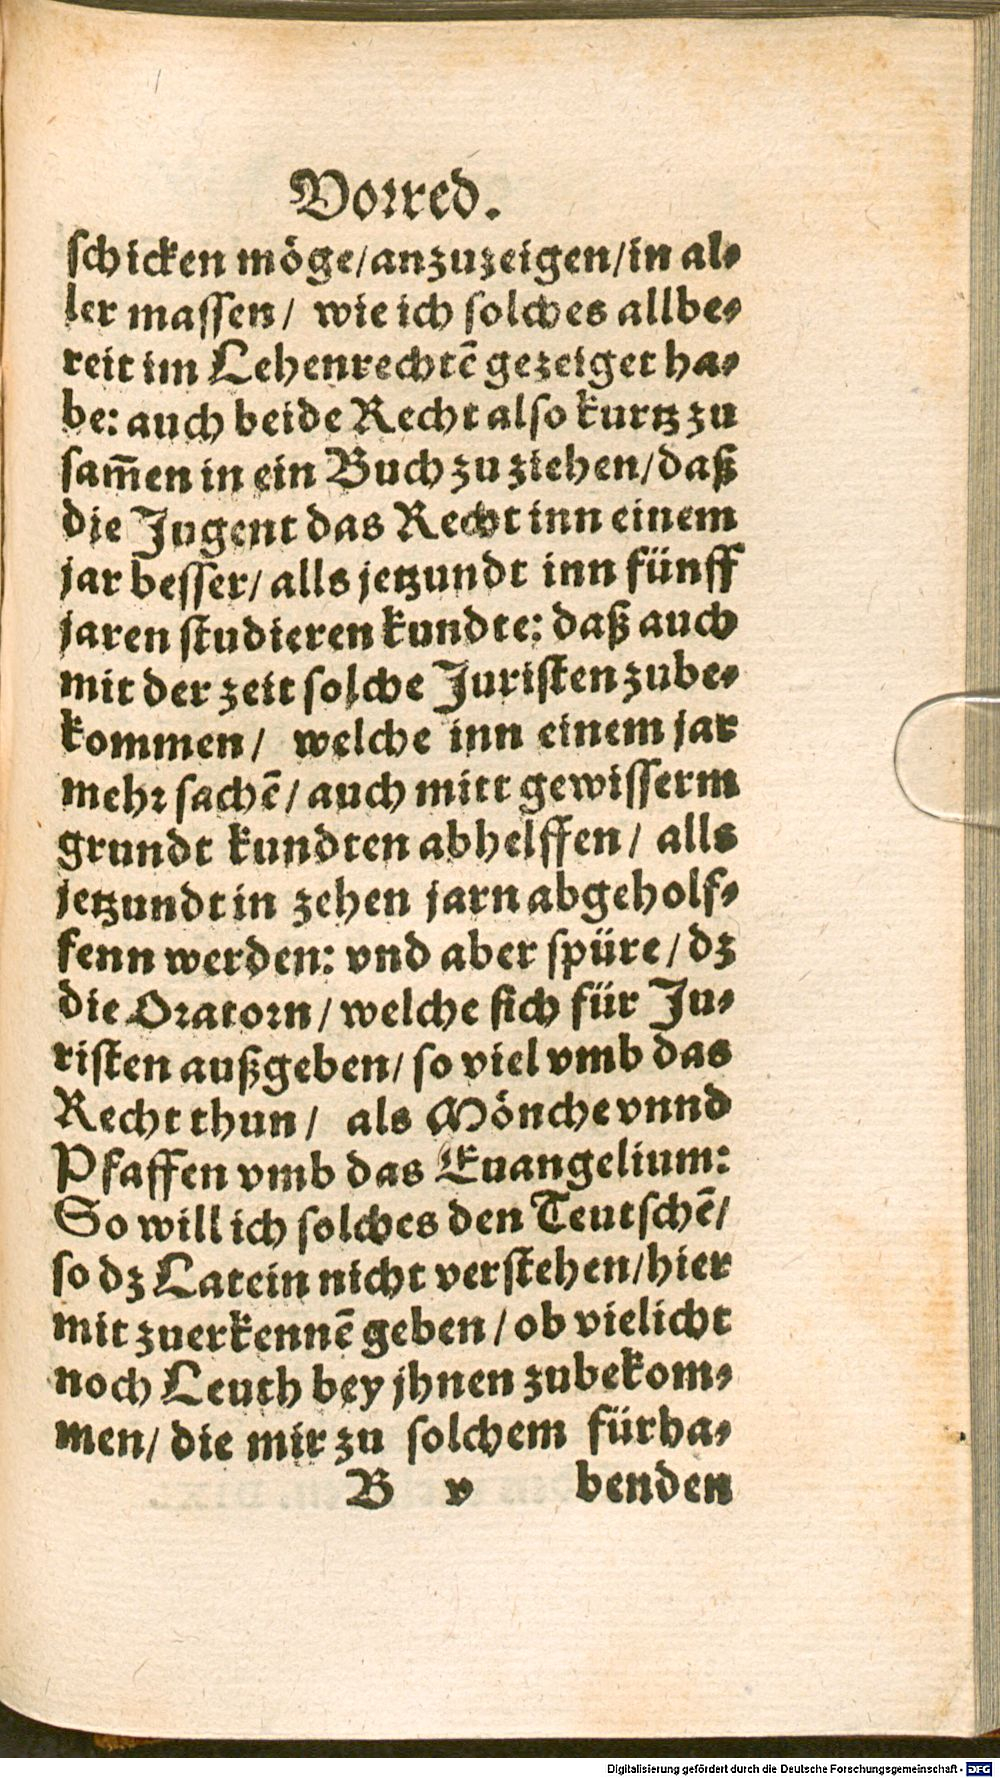 Vorred.
schicken möge/anzuzeigen/in al⸗
ler massen/ wie ich solches allbe⸗
reit im Lehenrechtē gezeiget ha⸗
be: auch beide Recht also kurtz zu
sam̄en in ein Buch zu ziehen/daß
die Jugent das Recht inn einem
jar besser/ alls jetzundt inn fünff
jaren studieren kundte: daß auch
mit der zeit solche Juristen zube⸗
kommen/ welche inn einem jar
mehr sachē/ auch mitt gewisserm
grundt kundten abhelffen/ alls
jetzundt in zehen jarn abgeholf⸗
fenn werden: vnd aber spüre/ dz
die Oratorn/ welche sich für Ju⸗
risten außgeben/ so viel vmb das
Recht thun/ als Mönche vnnd
Pfaffen vmb das Euangelium:
So will ich solches den Teutschē/
so dz Latein nicht verstehen/hier
mit zuerkennē geben/ ob vielicht
noch Leuth bey jhnen zubekom⸗
men/ die mir zu solchem fürha⸗
B v benden
Digitalisierung gefördert durch die Deutsche Forschungsgemeinschaft - DFG